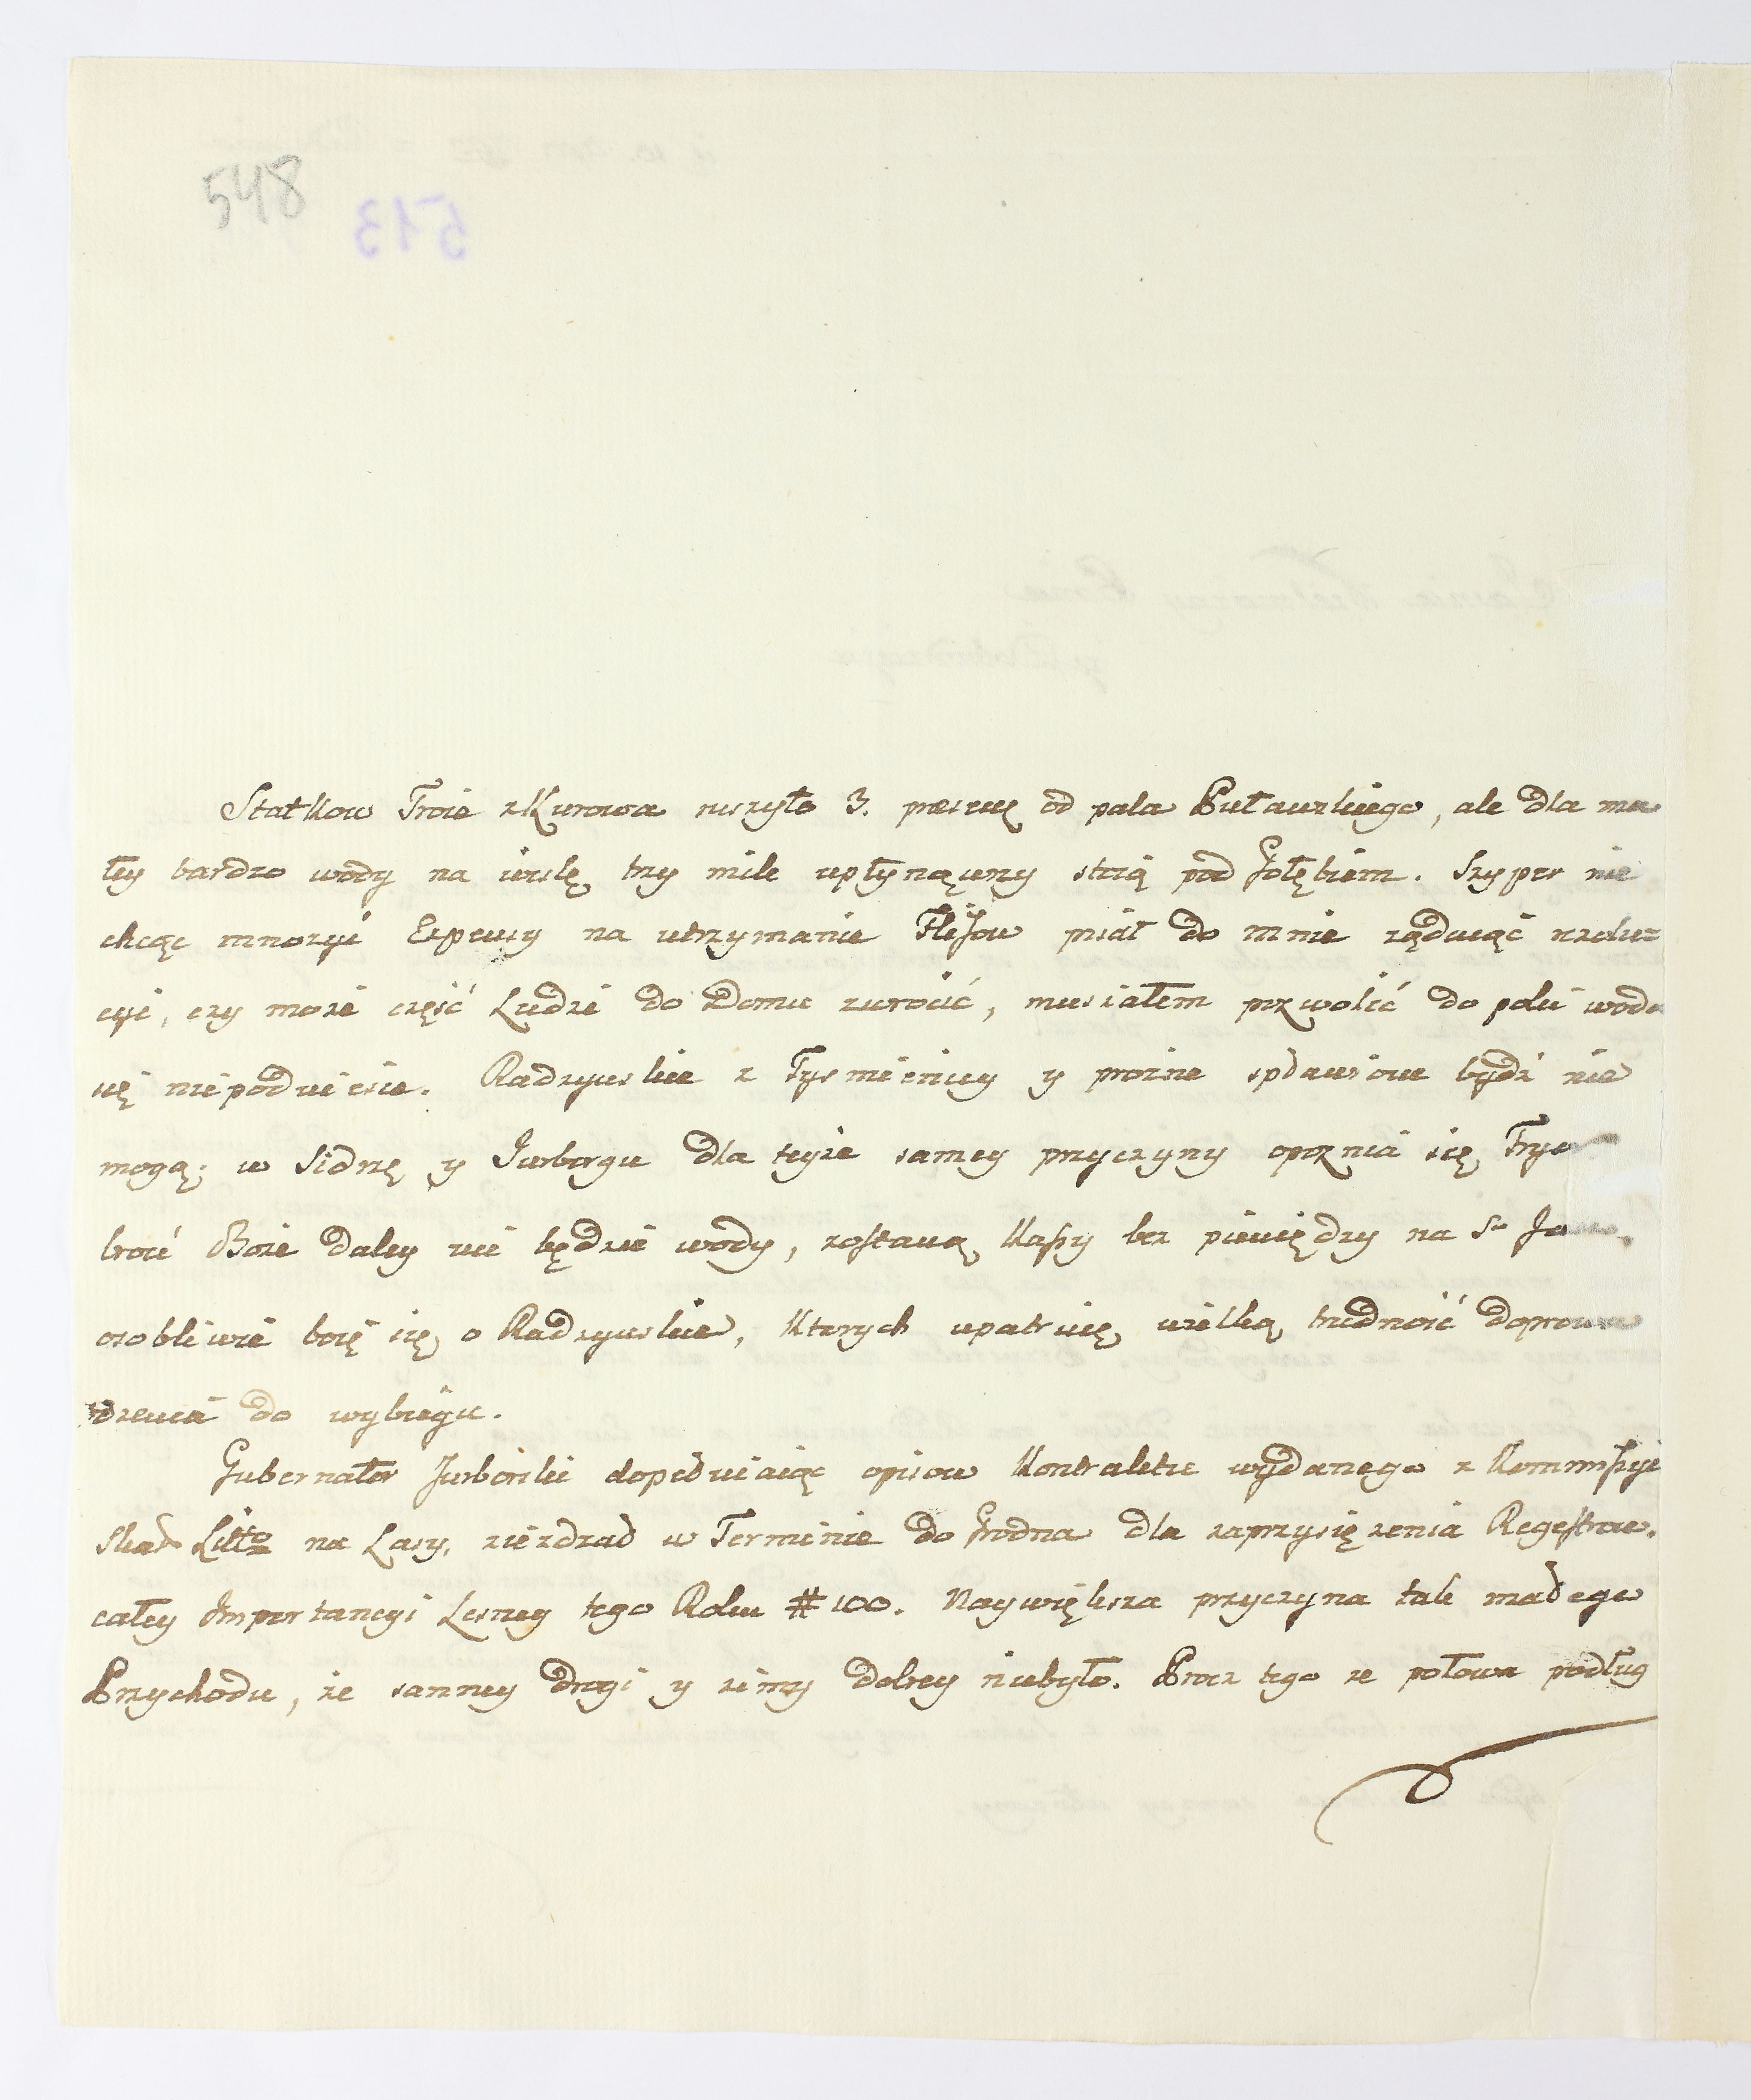 548
513
Statkow Troie z Kurowa ruszyło 3. praesent; od pala Puławskiego, ale dla ma
łey bardzo wody na wislę trzy mile upłynąwszy stoią pod Gołębiem. Szyper nie
chcąc mnożyć Expensy na utrzymanie Flisow pisał do mnie żądaiąc rezolu=
cyi, czy może część Ludzi do Domu zwrocić, musiałem pozwolić do poki woda
się niepodniesie. Radzynskie z Tysmienicy y prożne spławione bydź nie
mogą; w Sidrze y Jurborgu dla teyże samey przyczyny opoznia się Fryor
broń Boże daley nie będzie wody, zostaną Kassy bez pieniędzy na S.
osobliwie boię się o Radzynskie, Ktorych upatruię wielką trudność doprowa
dzenia do wybiegu.
Gubernator Jurborski dopełniaiąc opisow Kontraktu wydanego z Kommissyi
Skar. Litto na Lasy, ziezdzał w Terminie do Grodna dla zaprzysiężenia Regestrow.
całey Importancyi Lesney tego Roku # 100. Naywiększa przyczyna tak małego
Przychodu, że sanney drogi y zimy dobrey niebyło. Procz tego ze połowa podług